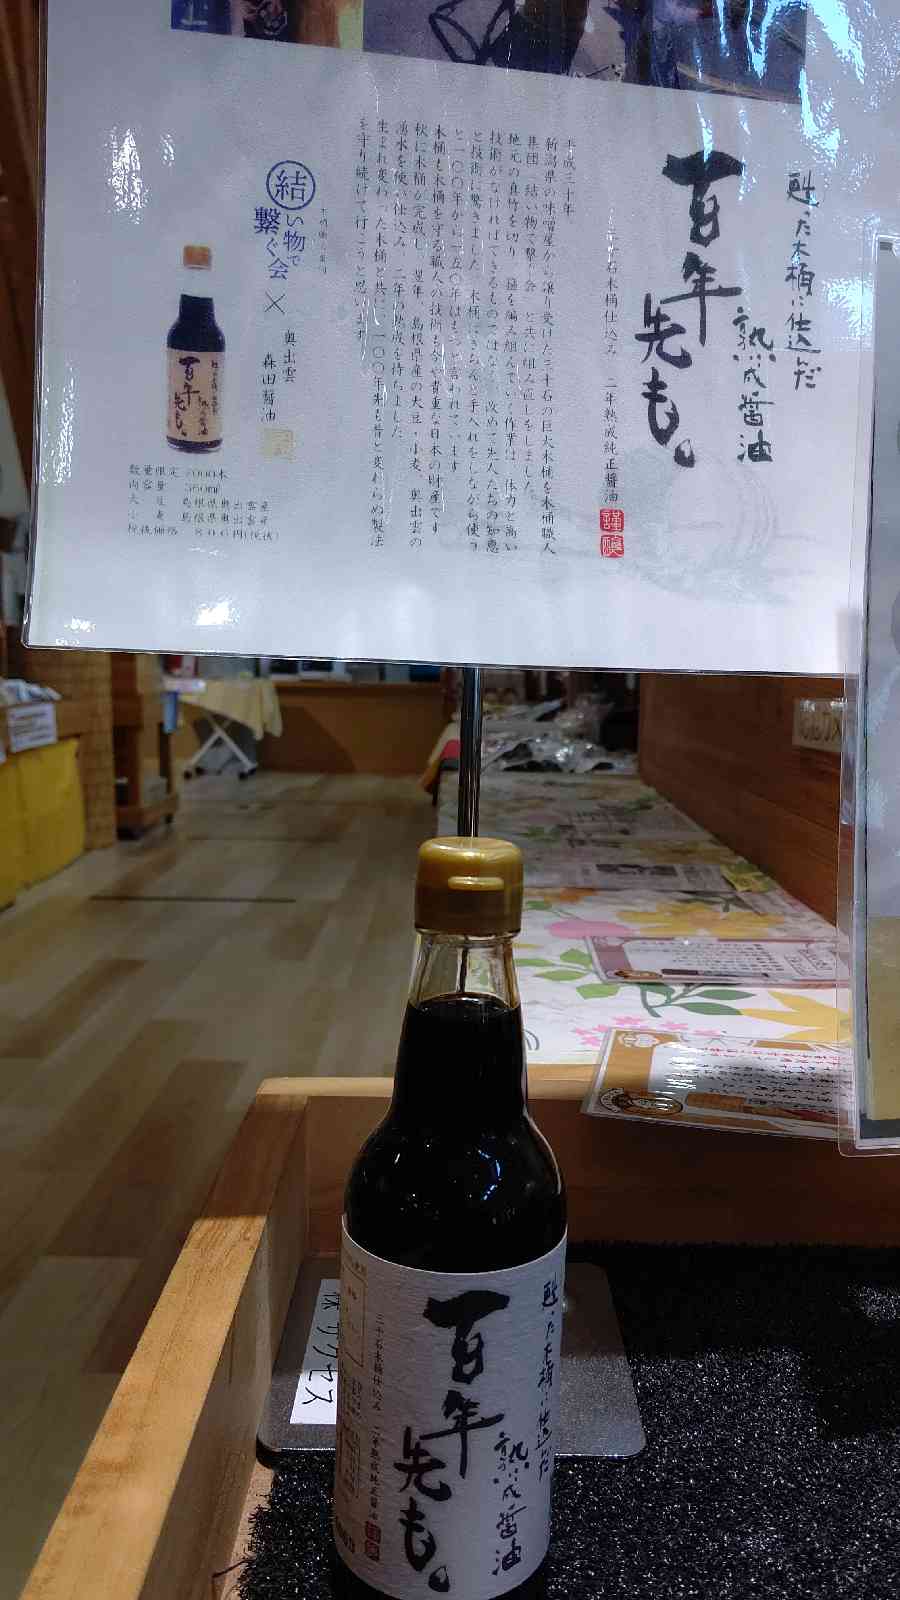 甦った木桶に仕込んだ
熟成醤油
百年
先も。
三十石木桶仕込み 二年熟成純正醤油
謹醸
平成三十年
新潟県の味噌屋から譲り受けた三十石の巨大木桶を木桶職人
集団「結い物で繋ぐ会」と共に組み直しをしました。
地元の真竹を切り、箍を編み組んでいく作業は、体力と高い
技術がなければできるものではなく、改めて先人たちの知恵
と技術に驚きました。木桶はきちんと手入れをしながら使う
と一〇〇年から一五〇年はもつと言われています。
木桶も木桶を守る職人の技術も今や貴重な日本の財産です。
秋に木桶が完成し、翌年、島根県産の大豆・小麦、奥出雲の
湧水を使い仕込み、二年の熟成を待ちました。
生まれ変わった木桶と共に、一〇〇年先も昔と変わらぬ製法
を守り続けて行こうと思います。
結い物で
繋ぐ会
×
奥出雲
森田醤油
百年
先も。
熟成醤油
数量限定 7000本
内容量 360ml
大豆 島根県奥出雲産
小麦 島根県奥出雲産
甦った木桶に仕込んだ
熟成醤油
百年
先も。
三十石木桶仕込み 二年熟成純正醤油
サクセス